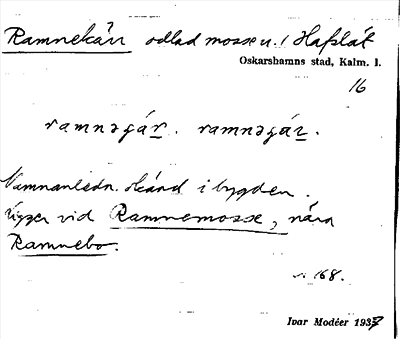 Ramnekärr odlad mosse u. / Hafslät
Oskarshamns stad, Kalm. l.
16
ramnəɡár. ramnəɡár.
Namnanledn. okänd i bygden.
ligger vid Ramnemosse, nära
Ramnebo.
168.
Ivar Modéer 1937